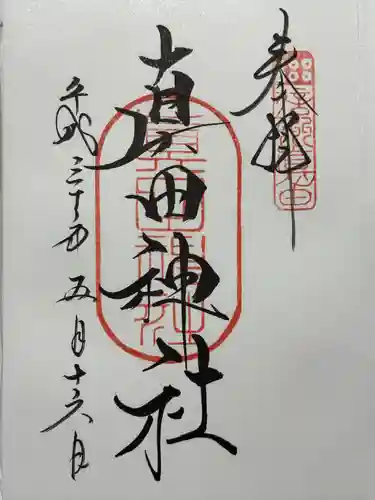 奉拝
真田神社
平成三十年五月十六日